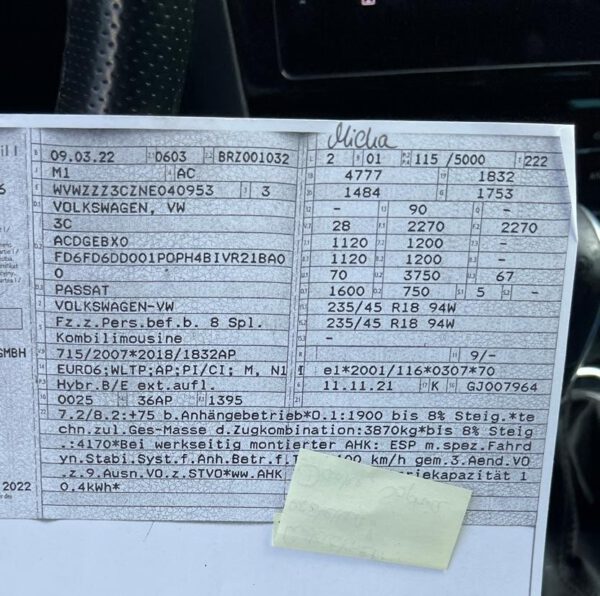 Micha
09.03.22 0603 BRZ001032 2 01 115 /5000 222
M1 AC 4777 1832
WVWZZZ3CZNE040953 3 1484 1753
VOLKSWAGEN, VW - 90 -
3C 28 2270 2270
ACDGEBX0 1120 1200 -
FD6FD6DD001P0PH4BIVR21BA0 1120 1200 -
0 70 3750 67
PASSAT 1600 750 5 -
VOLKSWAGEN-VW 235/45 R18 94W
Fz.z.Pers.bef.b. 8 Spl. 235/45 R18 94W
Kombilimousine -
GMBH 715/2007*2018/1832AP 9/-
EURO6;WLTP;AP;PI/CI; M, N1 I e1*2001/116*0307*70
Hybr.B/E ext.aufl. 11.11.21 K GJ007964
0025 36AP 1395
7.2/8.2:+75 b.Anhängebetrieb*O.1:1900 bis 8% Steig.*te
chn.zul.Ges-Masse d.Zugkombination:3870kg*bis 8% Steig
.:4170*Bei werkseitig montierter AHK: ESP m.spez.Fahrd
yn.Stabi.Syst.f.Anh.Betr.f. km/h gem.3.Aend.VO
2022 .z.9.Ausn.VO.z.STVO*ww.AHK riekapazität 1
0.4kWh*